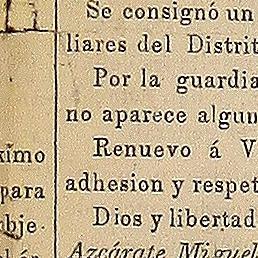 Se consignó un
liares del Distrit
Por la guardia
no aparece algun
Renuevo á V
adhesion y respet
Dios y libertad
Azcárate Miguel
ximo
para
bje